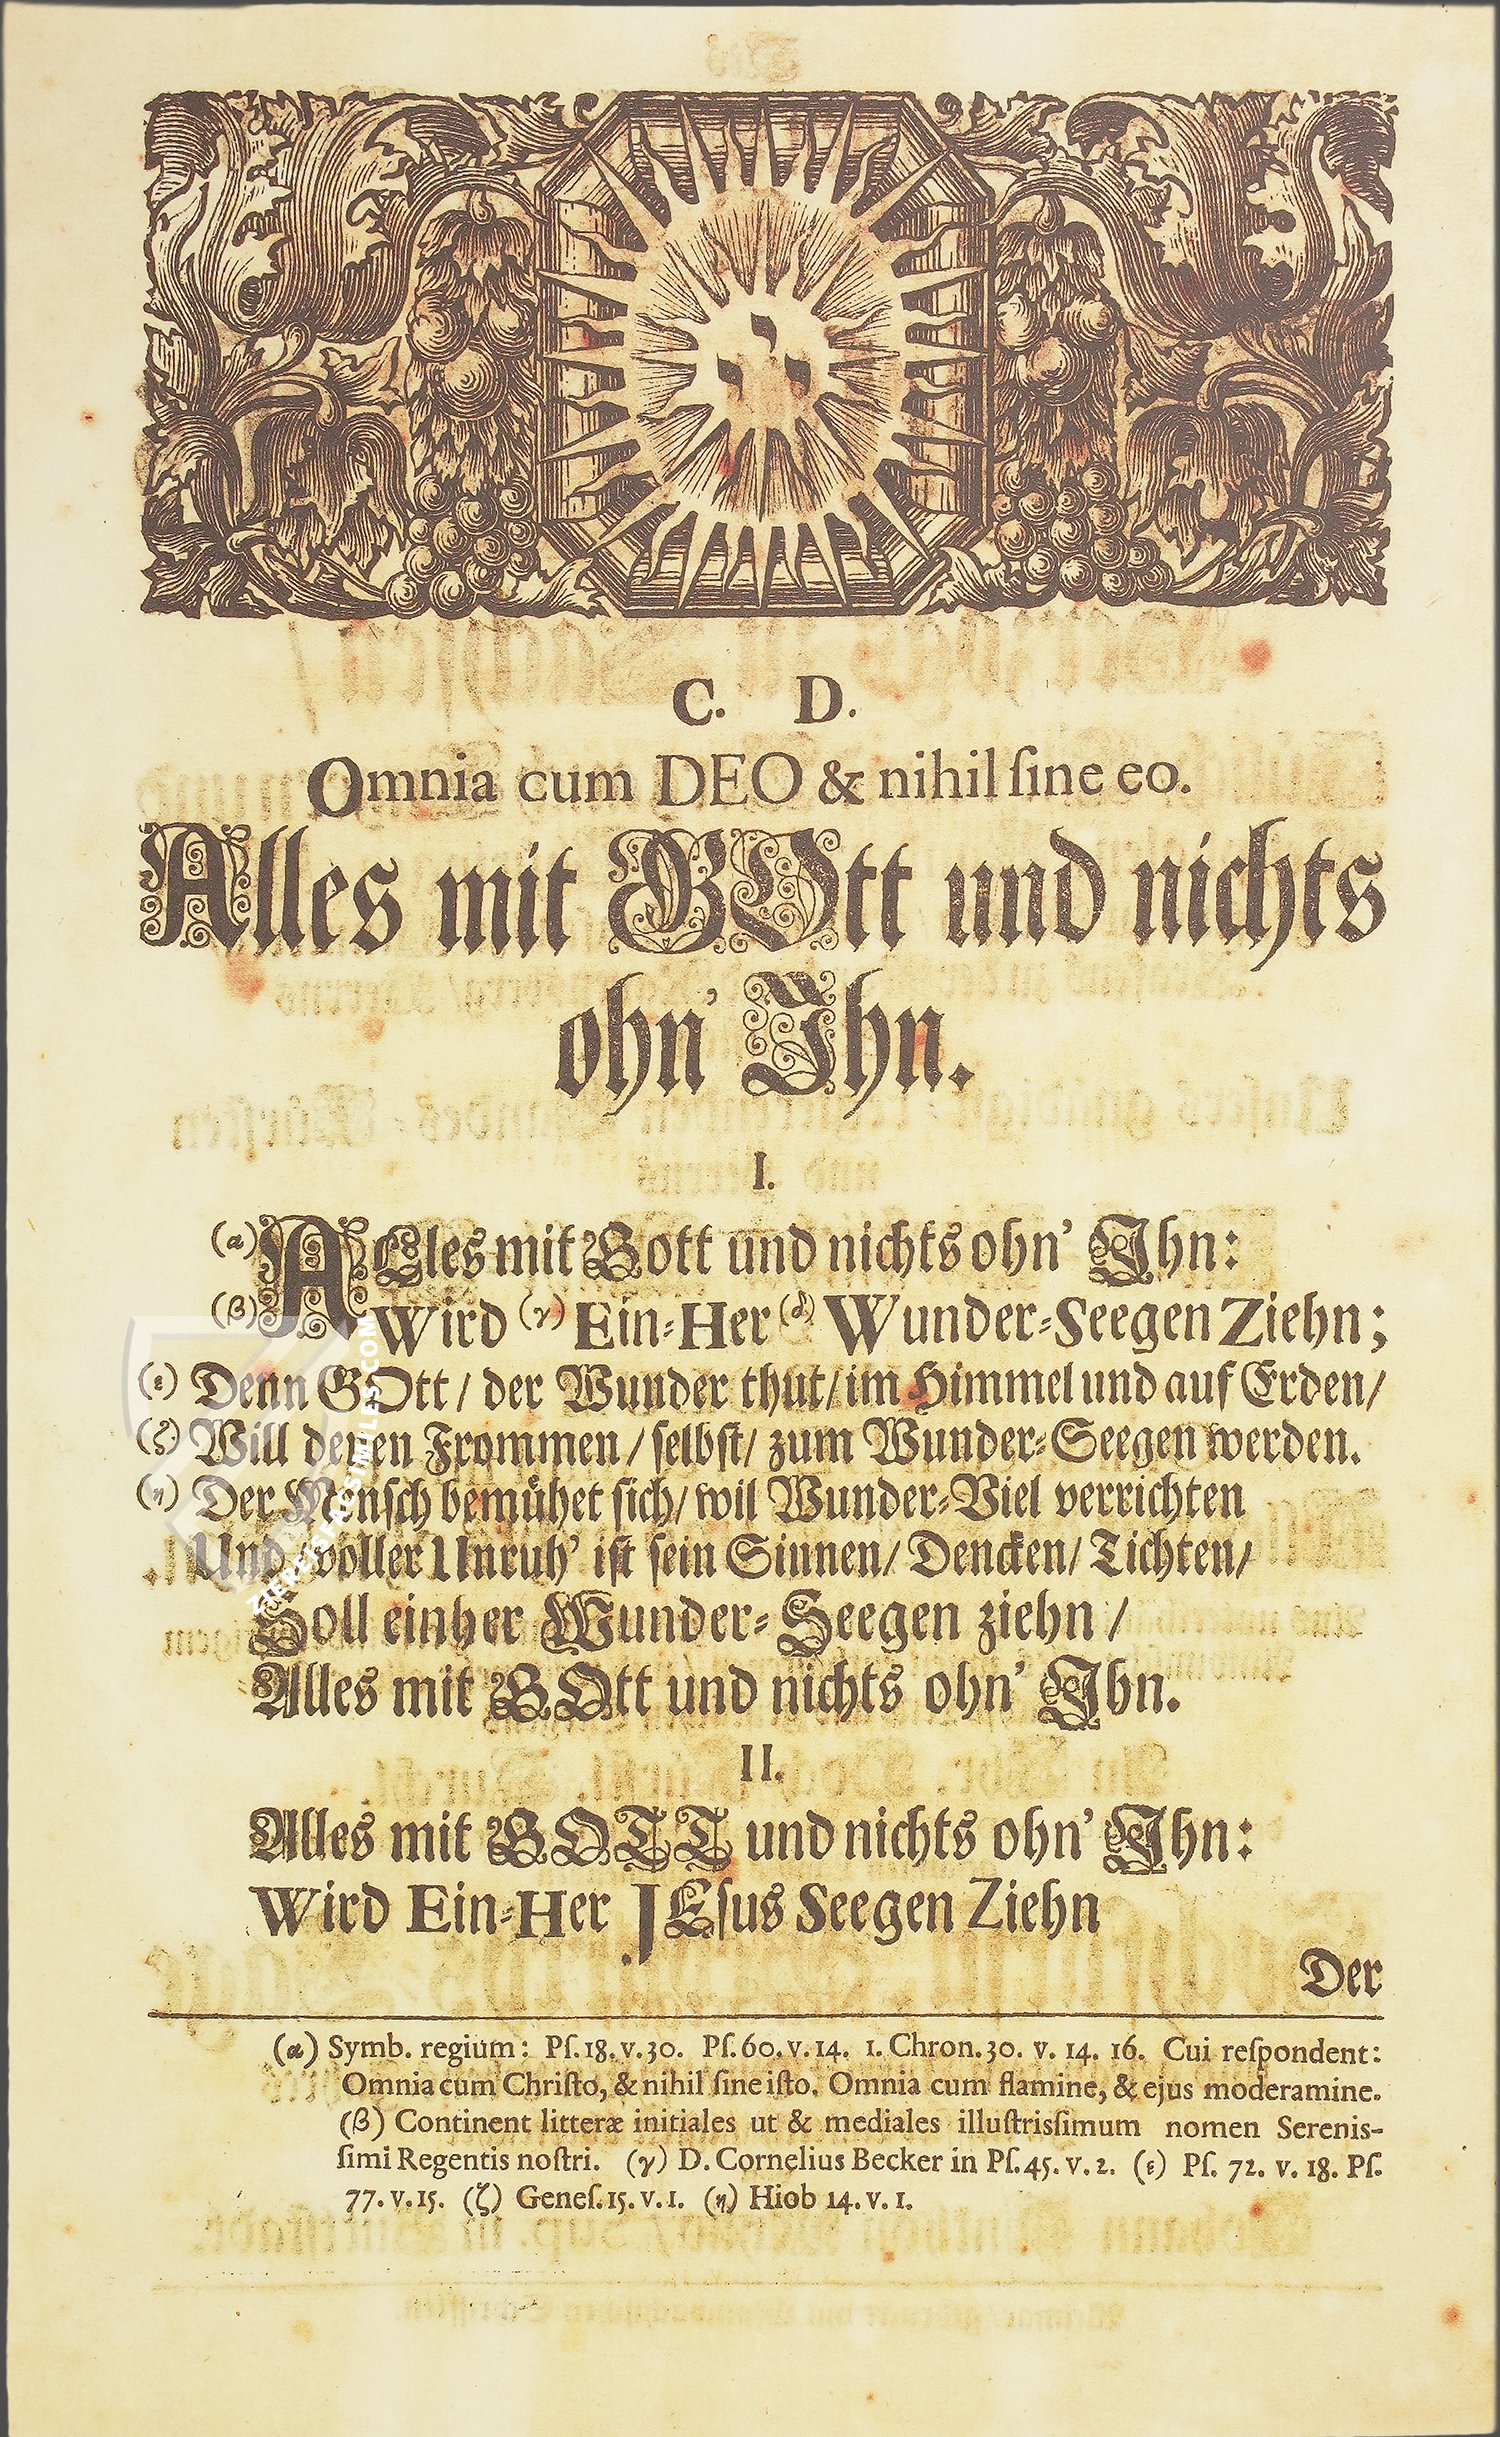 י
י י
C. D.
Omnia cum DEO & nihil ſine eo.
Alles mit GOtt und nichts
ohn' Ihn.
I.
(α) ALles mit Gott und nichts ohn' Ihn:
(β) Wird (γ) Ein-Her (δ) Wunder-Seegen Ziehn;
(ε) Denn GOtt/ der Wunder thut/ im Himmel und auf Erden/
(ζ) Will denen Frommen/ ſelbſt/ zum Wunder-Seegen werden.
(η) Der Menſch bemühet ſich/ wil Wunder-Viel verrichten
Und voller Unruh' iſt ſein Sinnen/ Dencken/ Tichten/
Soll einher Wunder-Seegen ziehn/
Alles mit GOtt und nichts ohn' Ihn.
II.
Alles mit GOTT und nichts ohn' Ihn:
Wird Ein-Her JEſus Seegen Ziehn
Der
(α) Symb. regium: Pſ. 18. v. 30. Pſ. 60. v. 14. 1. Chron. 30. v. 14. 16. Cui reſpondent:
Omnia cum Chriſto, & nihil ſine iſto. Omnia cum flamine, & ejus moderamine.
(β) Continent litteræ initiales ut & mediales illuſtrisſimum nomen Serenis-
ſimi Regentis noſtri. (γ) D. Cornelius Becker in Pſ. 45. v. 2. (ε) Pſ. 72. v. 18. Pſ.
77. v. 15. (ζ) Geneſ. 15. v. 1. (η) Hiob 14. v. 1.